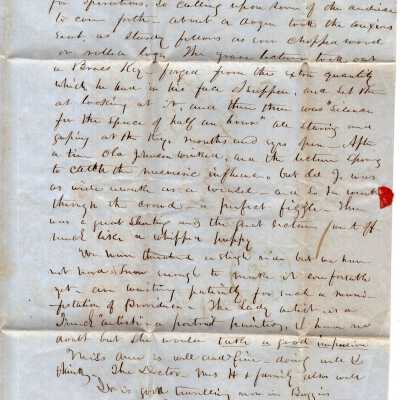 for operations, so calling upon some of the audience
to come forth - about a dozen took the anxious
seat, as sturdy fellows as ever chopped wood
or rolled logs. The grave lecturer took out
a Brass Key - forged from the extra quantity
which he had in his face I suppose, and set them
at looking at it, and then there was "silence
for the space of half an hour" all staring and
gaping at the Key, mouths and eyes open - After
a time Old winked, and the lecturer sprang
to catch the mesmeric influence, but did I. was
as wide awake as a - and so It went
through the crowd - a perfect fizzle - There
was a great and the great lecturer
much like a whipped puppy
We were a sleigh ride but we have
not had snow enough to make it comfortable
yet - am waiting patiently for such a
of Providence - The Lady artist is a
French "artiste" a portrait painter, I have no
doubt but she would take a good
Miss Ann is well and fine - doing well I
think - The Doctor - Mrs H & family also well
Dr is good travelling now in Buggies